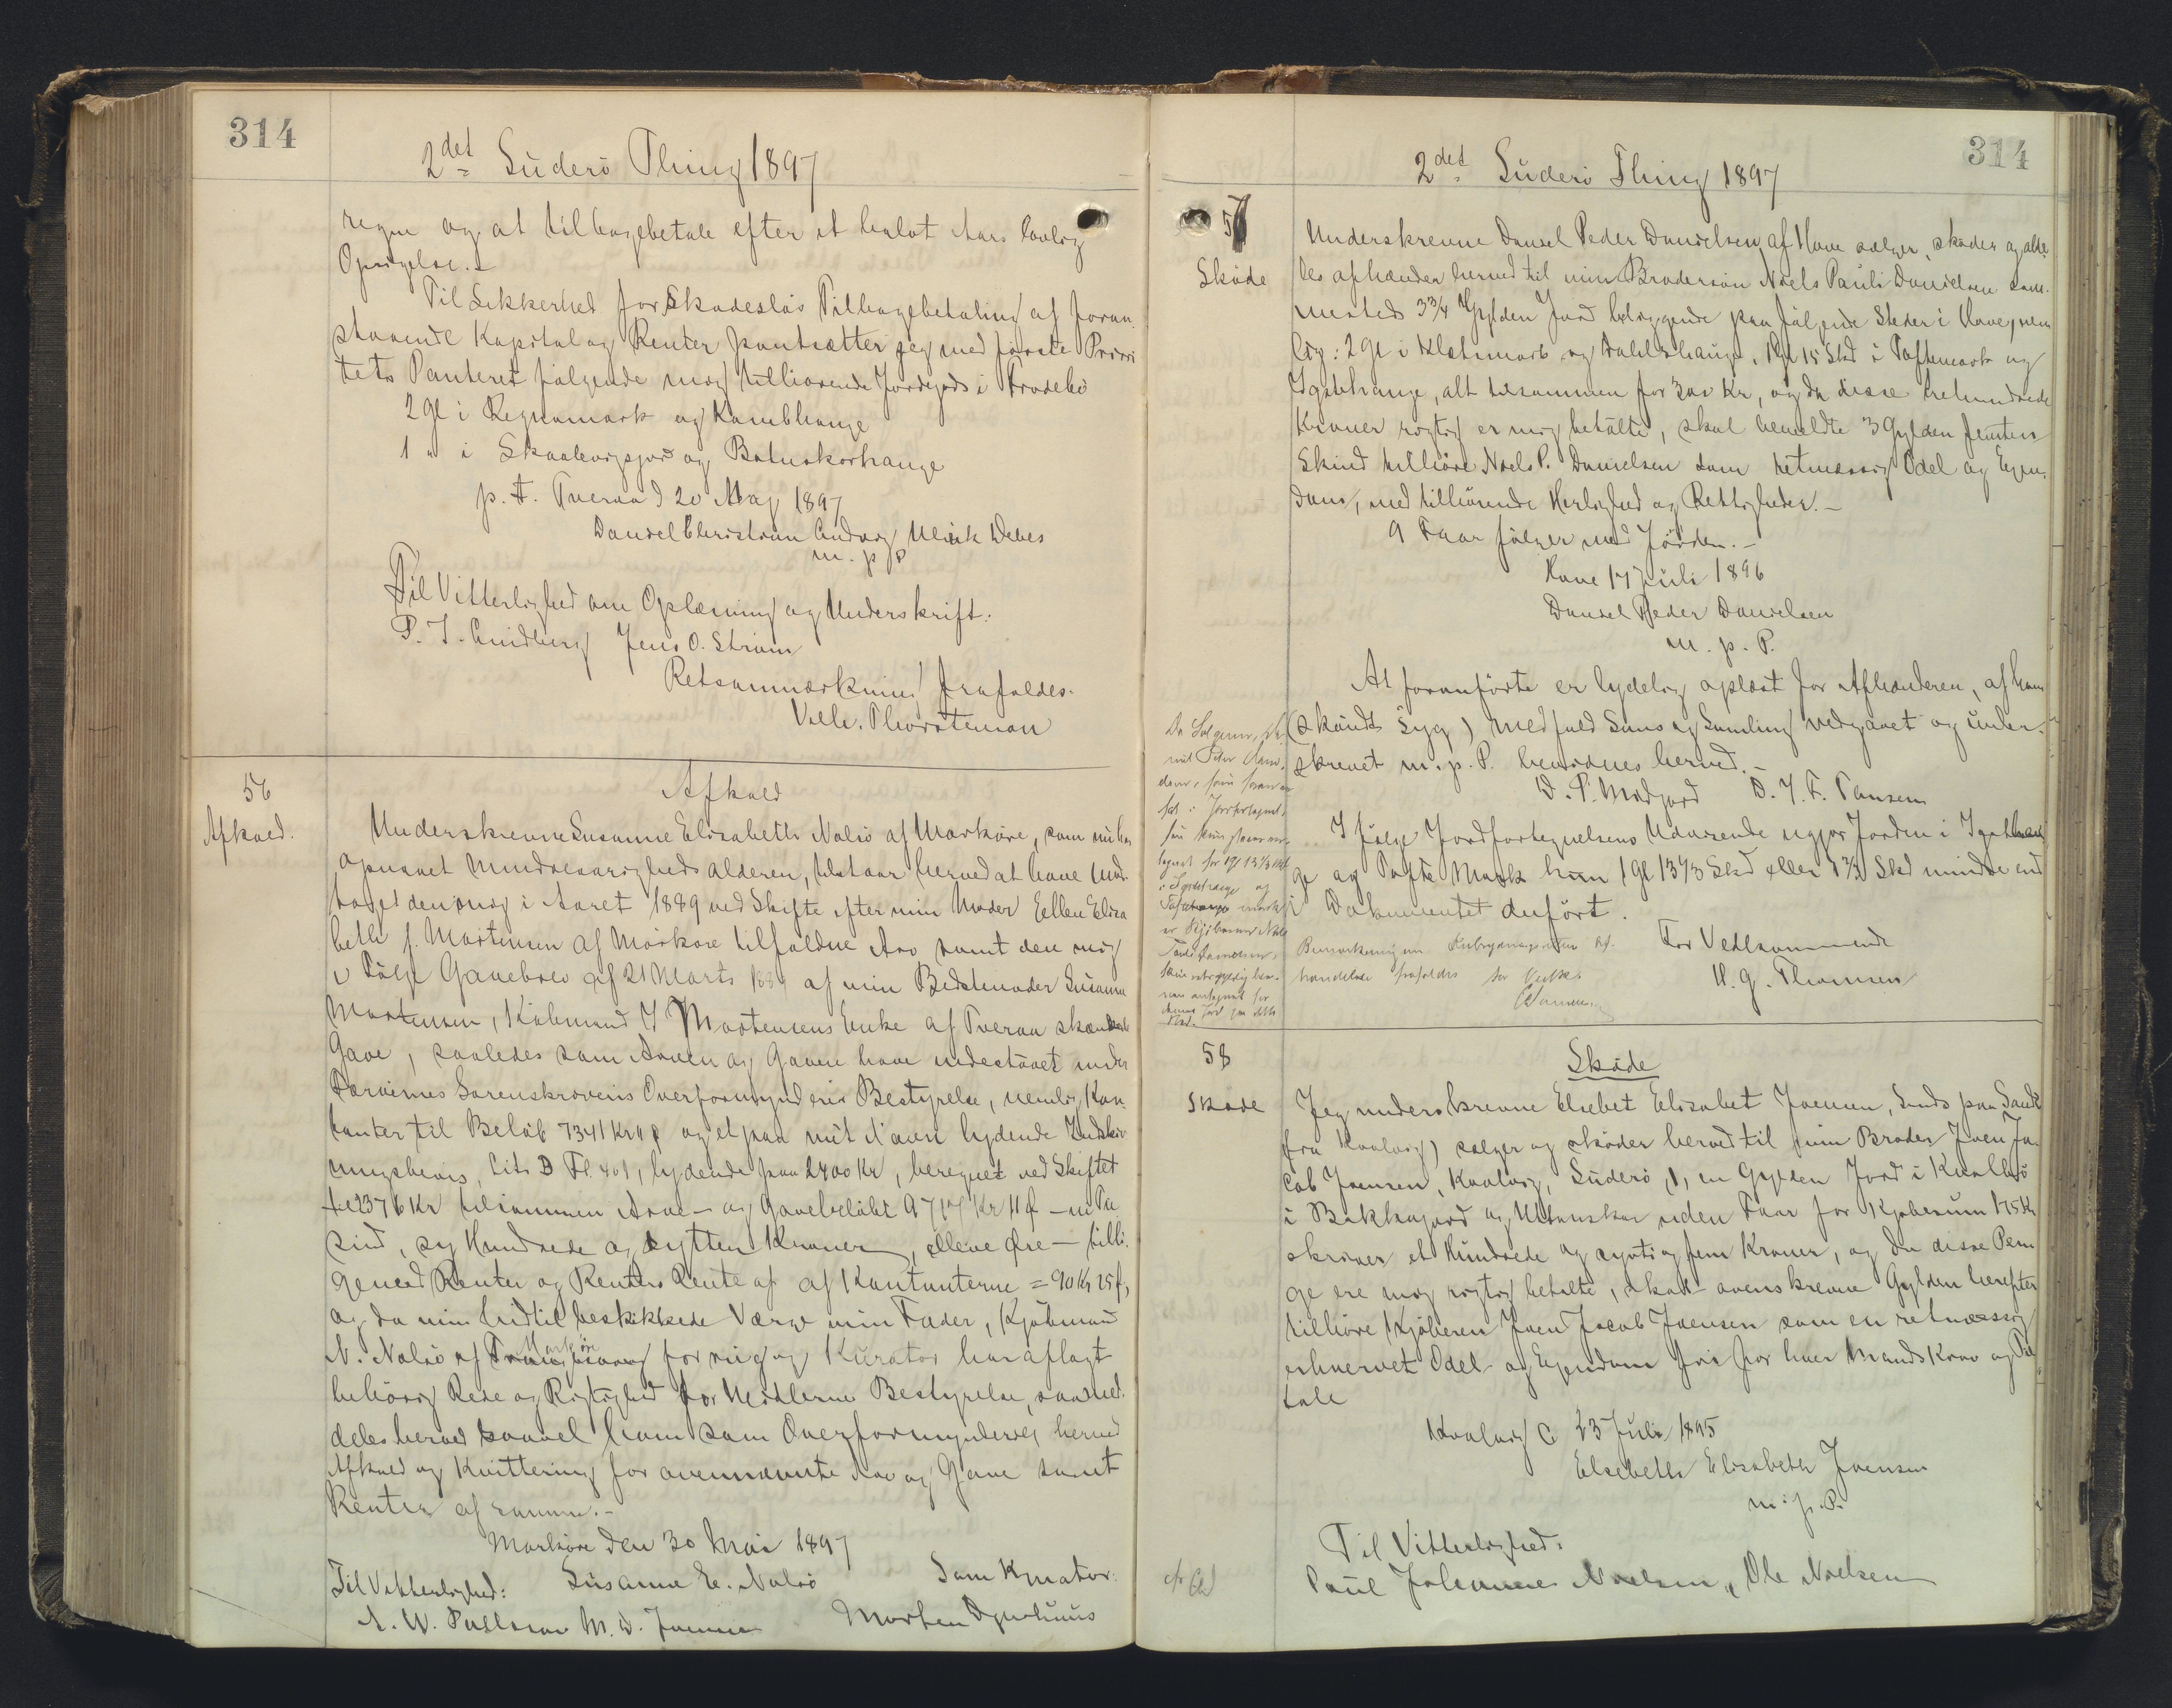 314
2det Suderö Thing 1897
regne og at tilbagebetale efter et halvt Aars lovlig
Opsigelse.
Til Sikkerhed for Skadeslös Tilbagebetaling af foran
staaende Kapital og Renter pantsætter jeg med förste Priori
tets Panteret fölgende mig tilhörende Jordegods i Frodebö
2 gl i Regnamark og Kamblhauge
1 " i Skaalevigsgjord og Botnskorhauge
p. t. Tveraa d 20 Maj 1897
Daniel Christian Ludvig Ulrik Debes
m. p. P
Til Vitterlighed om Oplæsning og Underskrift:
P. J. Lindberg Jens O. Ström
Retsanmærkning frafaldes.
Vilh. Thorsteinson
56
Afkald.
Afkald
Underskrevne Susanne Elisabeth Nolsö af Morköre, som nu har
opnaaet Mindreaarigheds alderen, tilstaar herved at have mod-
taget den mig i Aaret 1889 ved Skifte efter min Moder Ellen Elisa
beth f. Mortensen af Morköre tilfaldne Arv samt den mig
i Fölge Gavebrev af 21 Marts 1889 af min Bedstemoder Susanna
Mortensen, Köbmand T Mortensens Enke af Tveraa skænkede
Gave, saaledes som Arven og Gaven have indestaaet under
Færöernes Sorenskriveris Overformynderis Bestyrelse, nemlig Kon-
tanter til Belöb 7341 Kr 11 f og et paa mit Navn lydende Indskriv
ningsbevis, Litr B Fl. 401, lydende paa 2400 Kr, beregnet ved Skiftet
til 2376 Kr tilsammen Arve- og Gavebelöbet 9717 Kr 11 f - ni Tu
sind, syv Hundrede og sytten Kroner, elleve Öre - tilli
gemed Renter og Renters Rente af af Kontanterne = 90 Kr 25 f,
og da min hidtil beskikkede Værge min Fader, Kjöbmand
N. Nolsö af Morköre for mig og Kurator har aflagt
behörig Rede og Rigtighed for Midlernes Bestyrelse, saa med
deles herved saavel ham som Overformynderiet herved
Afkald og Kvittering for ovennævnte Arv og Gave samt
Renter af samme.-
Morköre den 30 Mai 1897
Til Vitterlighed: Susanne E. Nolsö Som Kurator:
M. D. Morten Dyrhuus
314
2det Suderö Thing 1897
57
Sköde
Underskrevne Daniel Peder Danielsen af Hove sælger, sköder og alde
les afhænder herved til min Brodersön Niels Pauli Danielsen sam-
mesteds 3 3/4 Gylden Jord beliggende paa fölgende Steder i Hove, nem
lig: 2 gl i Kletimork og , 1 gl 15 Skd i Toftemork og
Igstehauge, alt tilsammen for 300 Kr, og da disse trehundrede
Kroner rigtig er mig betalte, skal bemeldte 3 Gylden femten
Skind tilhöre Niels P. Danielsen som retmæssig Odel og Ejen-
dom, med tilhörende Herlighed og Rettigheder.-
9 Faar fölger med Jorden.-
Hove 17 Juli 1896
Daniel Peder Danielsen
m. p. P.
At foranförte er lydelig oplæst for Afhænderen, af ham
(skjöndt Syg) med fuld Sans og Samling vedgaaet og under-
skrevet m. p. P. bevidnes herved.-
D. P. Midjord D. J. F. Hansen
I fölge Jordfortegnelsens Udvisende udgjør Jorden i Igstehau
ge og Tofte Mork kun 1 gl 13 1/3 Skd eller 1 2/3 Skd mindre end
i Dokumentet anfört.
For Vedkommende
H. G. Thomsen
Da Sælgeren,
i Igstehauge og
58
Sköde
Sköde
Jeg underskrevne Elsebet Elisabet Joensen, Sands paa Sandö
(fra Kvalvig) sælger og sköder herved til min Broder Joen Ja-
cob Joensen, Kvalvig, Suderö, 1, en Gylden Jord i Kvalbö
i Bakkagjord og uden Faar for Kjöbesum 175 Kr
skriver et Hundrede og syvti og fem Kroner, og da disse Pen
ge ere mig rigtig betalte, skal ovenskrevne Gylden herefter
tilhöre Kjöberen Joen Jacob Joensen som en retmæssig
erhvervet Odel og Ejendom fri for hver Mands Krav og Til
tale
Kvalvig d 23 Juli 1895
Elsebeth Elisabeth Joensen
m. p. P.
Til Vitterlighed:
Poul Johannes Nielsen, Ole Nielsen